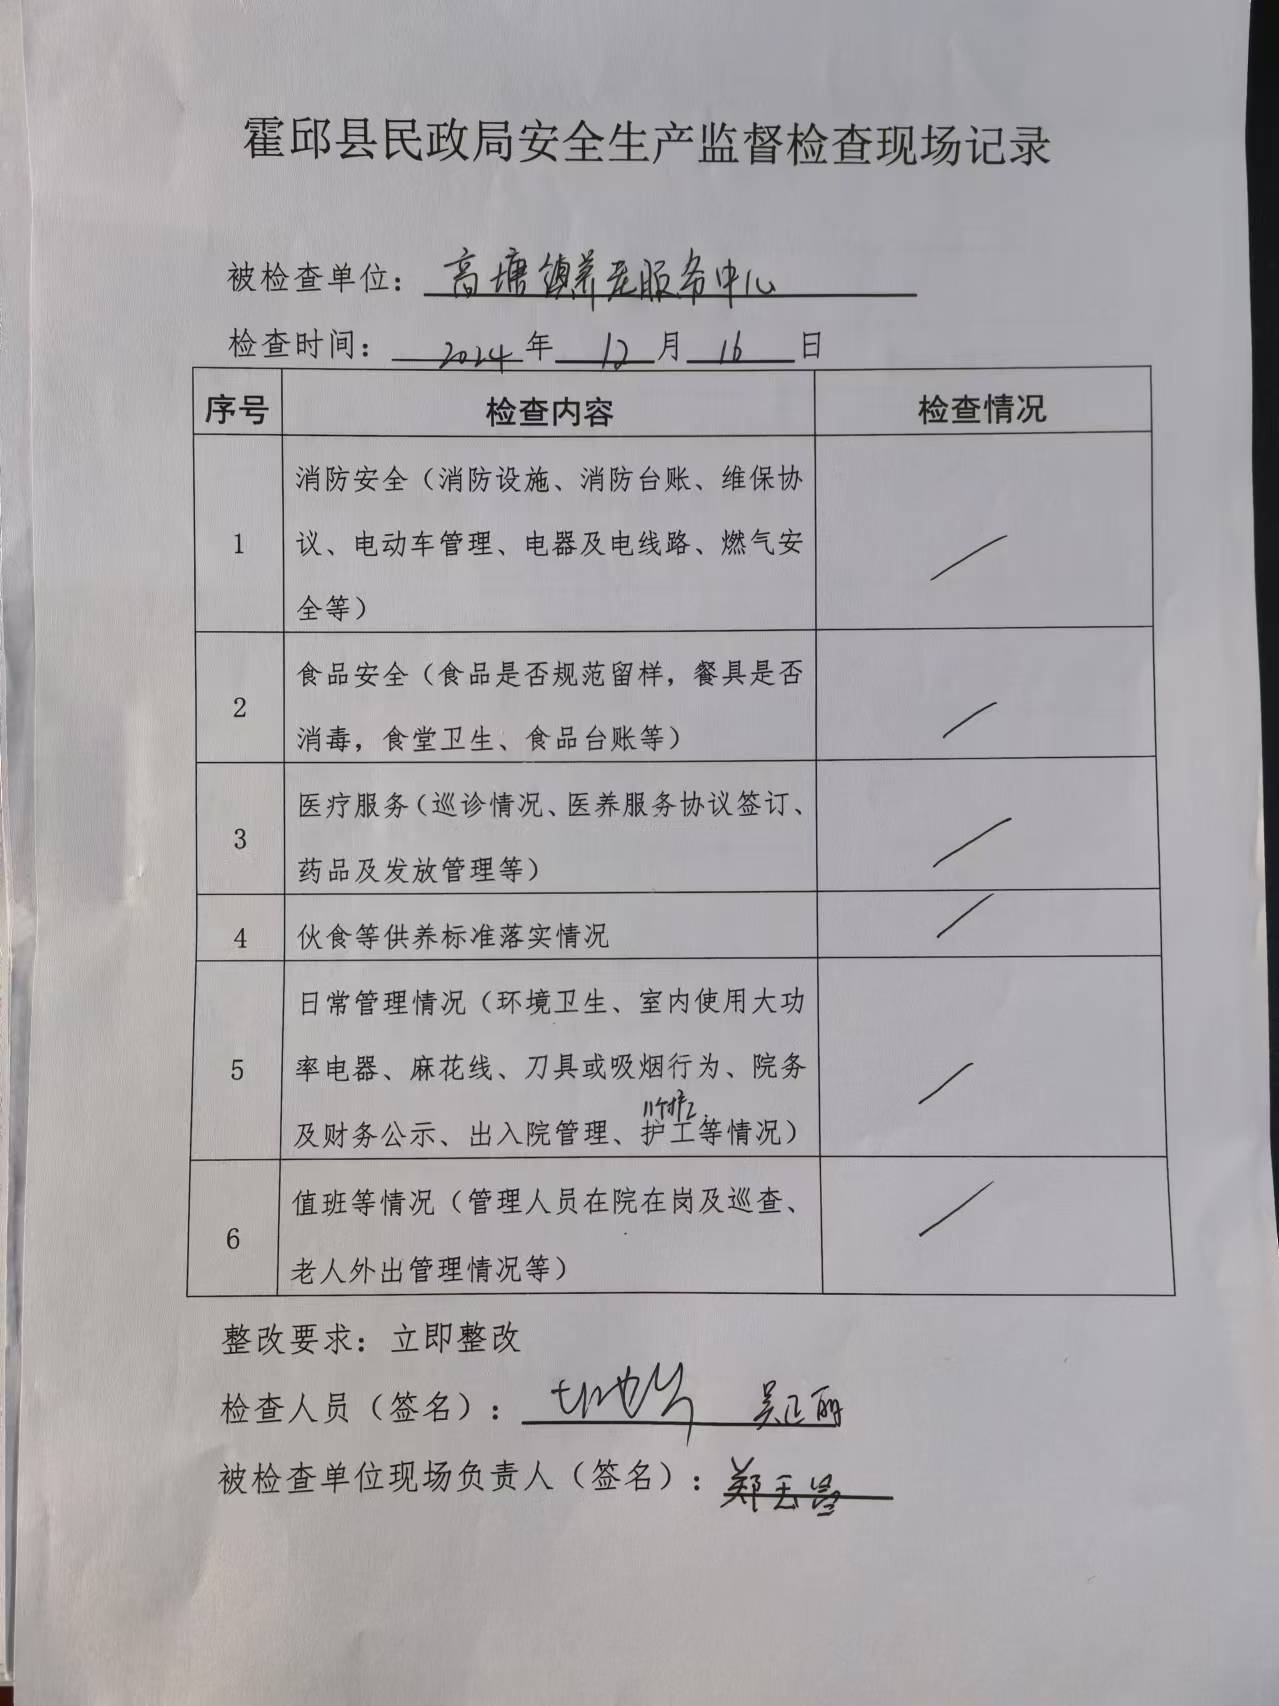 霍邱县民政局安全生产监督检查现场记录
被检查单位：高塘镇养老服务中心
检查时间：2024年12月16日
序号 检查内容 检查情况
1 消防安全（消防设施、消防台账、维保协
议、电动车管理、电器及电线路、燃气安
全等）
2 食品安全（食品是否规范留样，餐具是否
消毒，食堂卫生、食品台账等）
3 医疗服务（巡诊情况、医养服务协议签订、
药品及发放管理等）
4 伙食等供养标准落实情况
5 日常管理情况（环境卫生、室内使用大功
率电器、麻花线、刀具或吸烟行为、院务
及财务公示、出入院管理、护工等情况）
6 值班等情况（管理人员在院在岗及巡查、
老人外出管理情况等）
整改要求：立即整改
检查人员（签名）：吴正丽
被检查单位现场负责人（签名）：郑玉